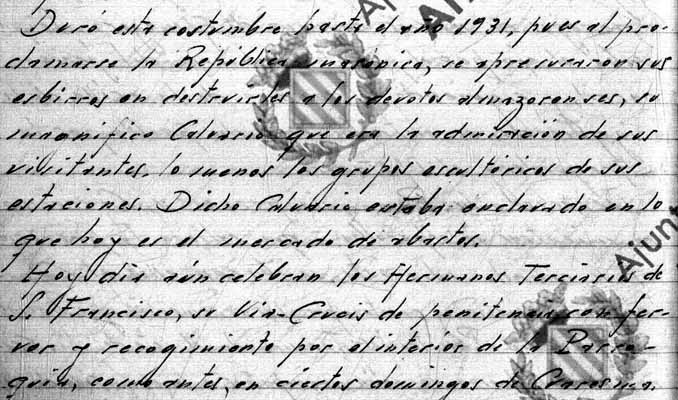 Duró esta costumbre hasta el año 1931, pues al pro-
clamarse la República, se apresuraron sus
esbirros en destruirles a los devotos almazorenses, su
magnífico Calvario que era la admiración de sus
visitantes, lo menos los grupos escultóricos de sus
estaciones. Dicho Calvario estaba enclavado en lo
que hoy es el mercado de abastos.
Hoy día aún celebran los Hermanos Terciarios de
S. Francisco, su Vía-Crucis de penitencia, con fer-
vor y recogimiento por el interior de la Parro-
quia, como antes, en ciertos domingos de Cuaresma.
Ajunt